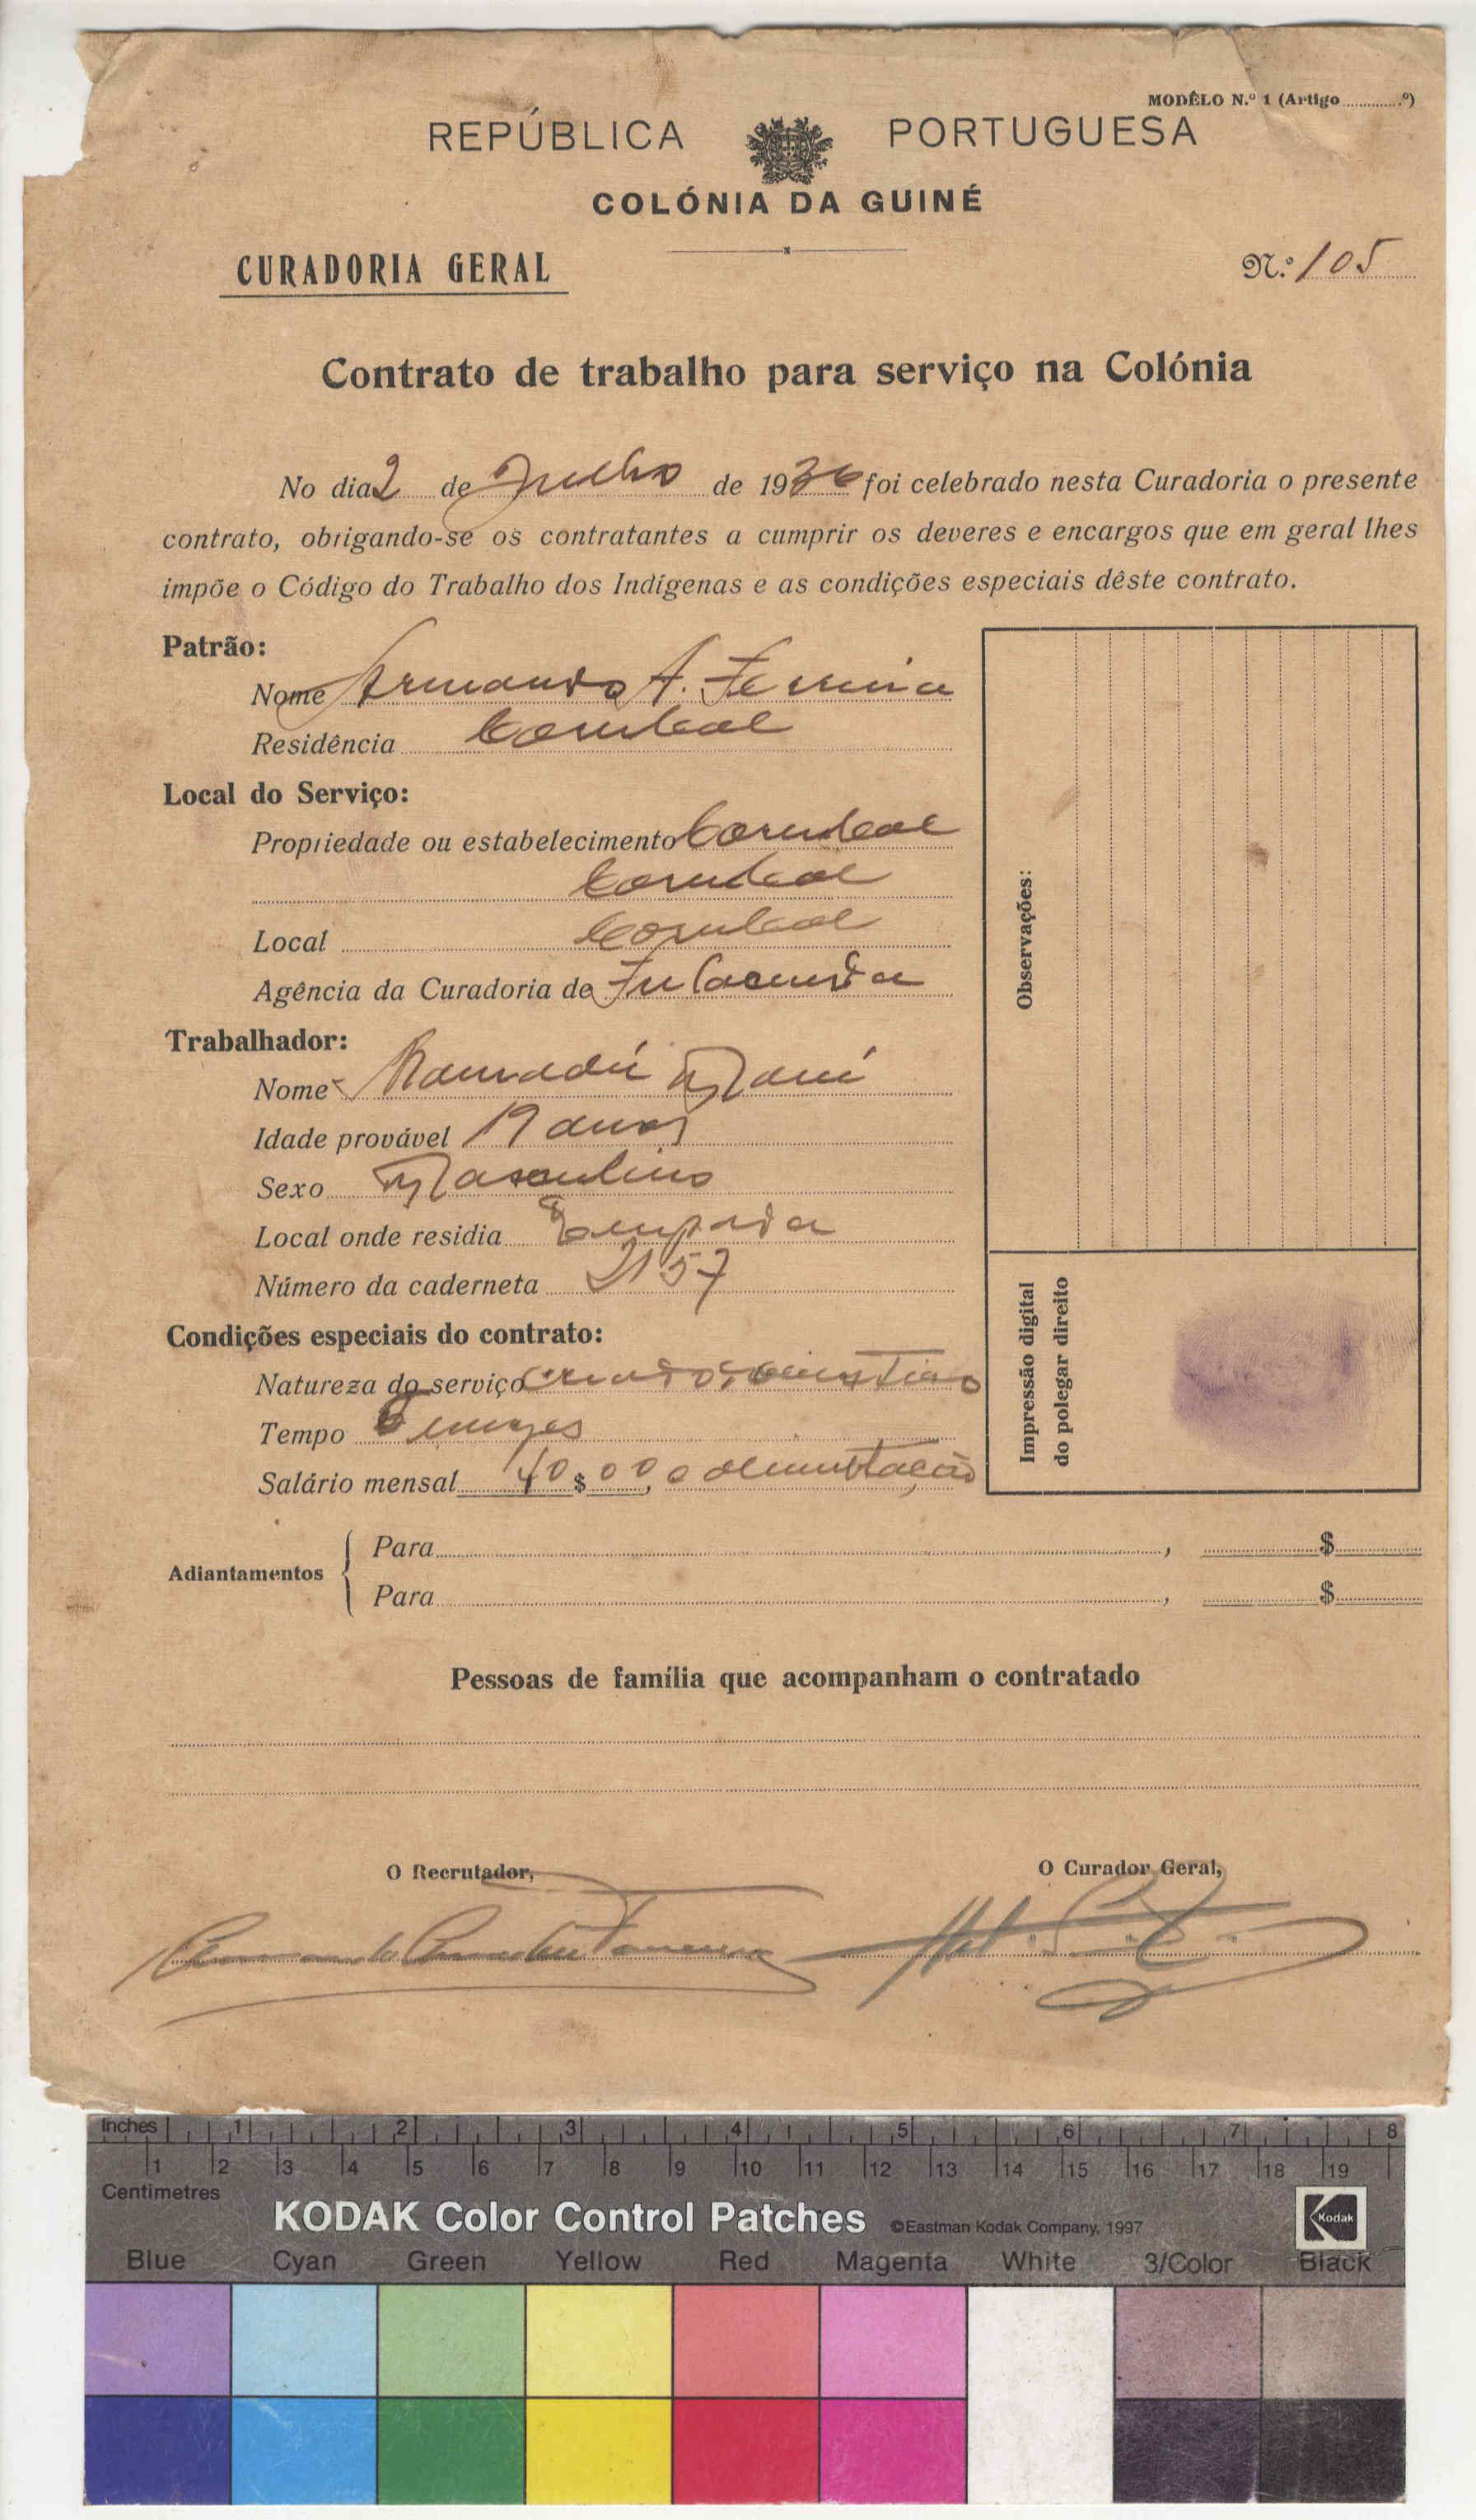 MODÊLO N.º 1 (Artigo ............º)
REPÚBLICA PORTUGUESA
COLÓNIA DA GUINÉ
CURADORIA GERAL
N.º 105
Contrato de trabalho para serviço na Colónia
No dia 2 de Julho de 1936 foi celebrado nesta Curadoria o presente
contrato, obrigando-se os contratantes a cumprir os deveres e encargos que em geral lhes
impõe o Código do Trabalho dos Indígenas e as condições especiais dêste contrato.
Patrão:
Nome Armando A. Ferreira
Residência Corubal
Local do Serviço:
Propriedade ou estabelecimento Corubal
Corubal
Local Corubal
Agência da Curadoria de Fulacunda
Trabalhador:
Nome Mamadú Mané
Idade provável 19 anos
Sexo Masculino
Local onde residia Empada
Número da caderneta 2157
Condições especiais do contrato:
Natureza do serviço criado doméstico
Tempo 6 mezes
Salário mensal 40$00, e alimentação
Observações:
Impressão digital
do polegar direito
Adiantamentos
Para , $
Para , $
Pessoas de família que acompanham o contratado
O Recrutador,
O Curador Geral,
Armando Ferreira
Inches 1 2 3 4 5 6 7 8
1 2 3 4 5 6 7 8 9 10 11 12 13 14 15 16 17 18 19
Centimetres
KODAK Color Control Patches ©Eastman Kodak Company, 1997 Kodak
Blue Cyan Green Yellow Red Magenta White 3/Color Black